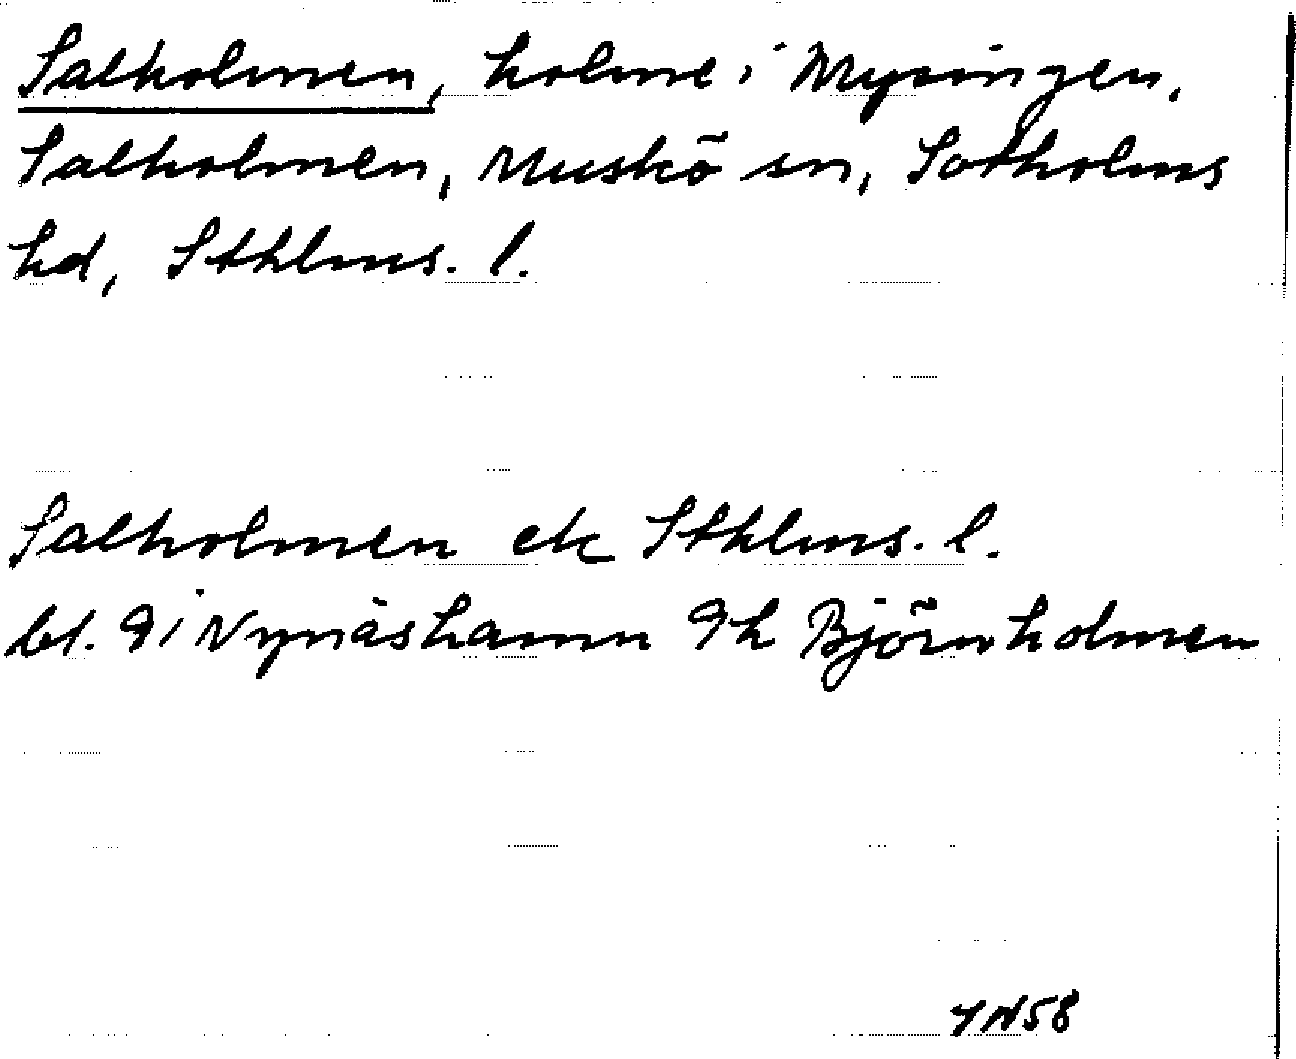 Salholmen, holme i Mysingen,
Salholmen, Muskö sn, Sotholms
hd, Sthlms. l.
Salholmen ek Sthlms. l.
bl. 9i Nynäshamn 9h Björnholmen
YN58